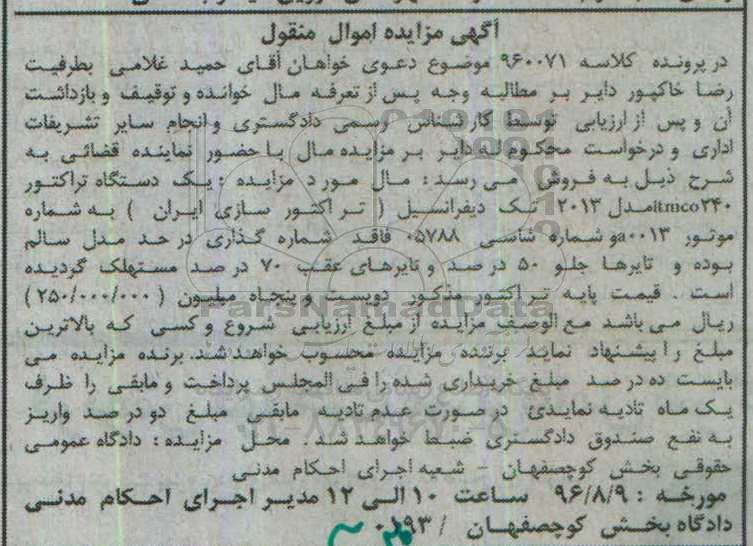 آگهی مزایده اموال منقول
در پرونده کلاسه ۹۶۰۰۷۱ موضوع دعوی خواهان آقای حمید غلامی بطرفیت
رضا خاکپور دایر بر مطالبه وجه پس از تعرفه مال خوانده و توقیف و بازداشت
آن و پس از ارزیابی توسط کارشناس رسمی دادگستری و انجام سایر تشریفات
اداری و درخواست محکوم له دایر بر مزایده مال با حضور نماینده قضائی به
شرح ذیل به فروش می رسد : مال مورد مزایده : یک دستگاه تراکتور
itmco۲۴۰مدل ۲۰۱۳ تک دیفرانسیل ( تراکتور سازی ایران ) به شماره
موتور a۰۰۱۳و شماره شاسی ۰۵۷۸۸ فاقد شماره گذاری در حد مدل سالم
بوده و تایرها جلو ۵۰ در صد و تایرهای عقب ۷۰ در صد مستهلک گردیده
است . قیمت پایه تراکتور مذکور دویست و پنجاه میلیون (۲۵۰/۰۰۰/۰۰۰)
ریال می باشد مع الوصف مزایده از مبلغ ارزیابی شروع و کسی که بالاترین
مبلغ را پیشنهاد نماید برنده مزایده محسوب خواهد شد. برنده مزایده می
بایست ده در صد مبلغ خریداری شده را فی المجلس پرداخت و مابقی را ظرف
یک ماه تادیه نمایدئ در صورت عدم تادیه مابقی مبلغ دو در صد واریز
به نفع صندوق دادگستری ضبط خواهد شد . محل مزایده : دادگاه عمومی
حقوقی بخش کوچصفهان – شعبه اجرای احکام مدنی
مورخه : ۹۶/۸/۹ ساعت ۱۰ الی ۱۲ مدیر اجرای احکام مدنی
دادگاه بخش کوچصفهان / ۰۱۹۳
ParsNamadData